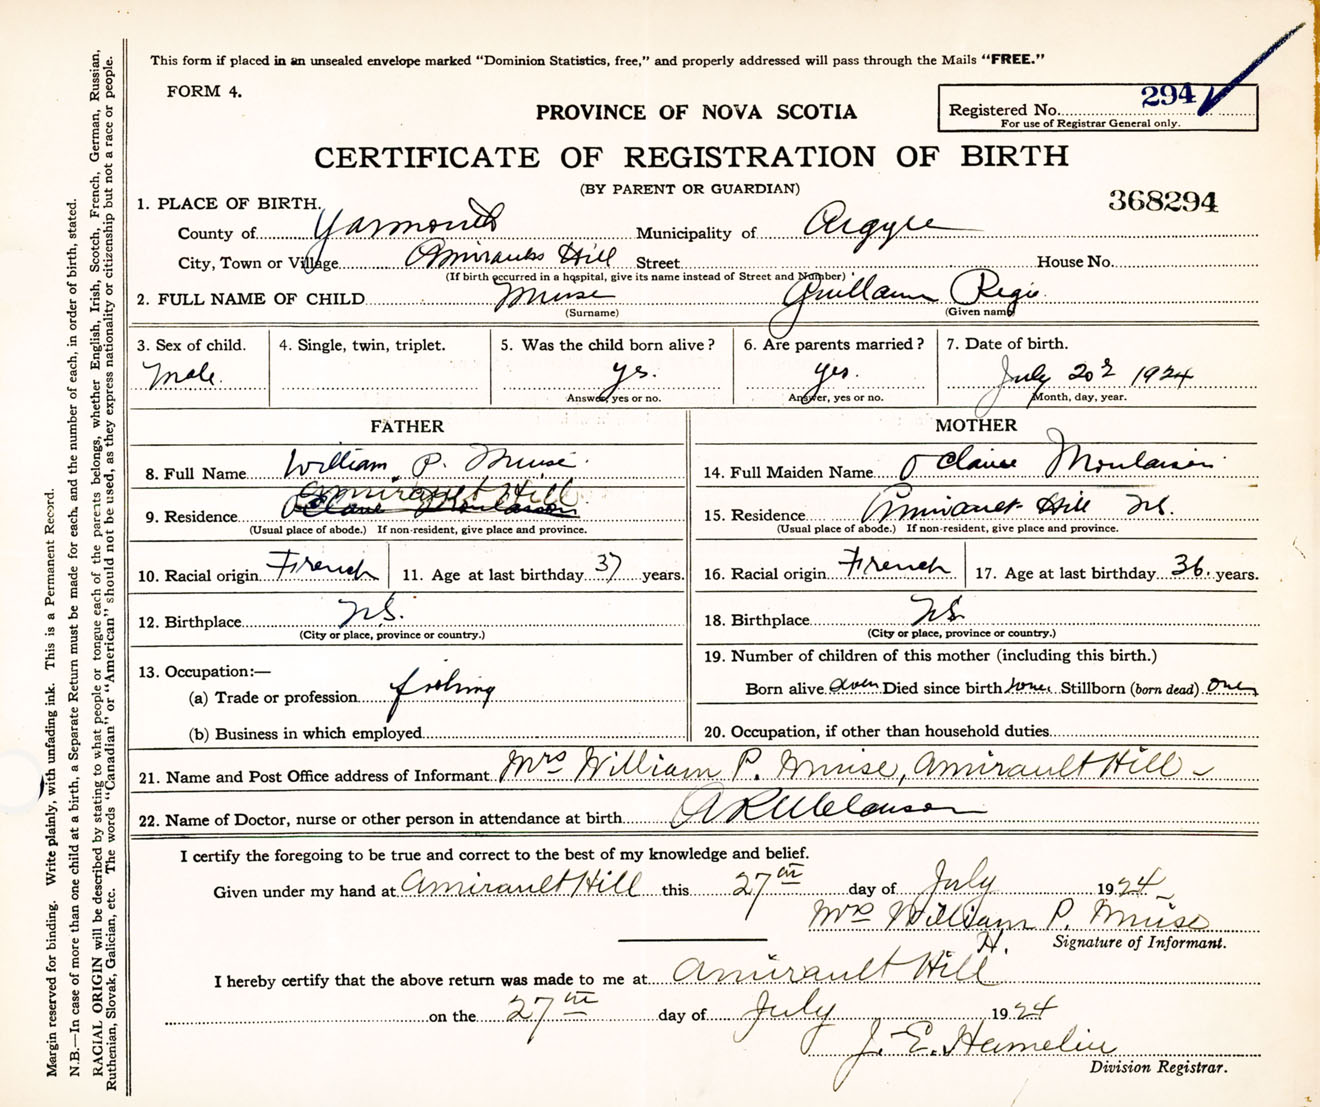 This form if placed in an unsealed envelope marked “Dominion Statistics, free,” and properly addressed will pass through the Mails “FREE.”
FORM 4.
PROVINCE OF NOVA SCOTIA
Registered No. 294
For use of Registrar General only.
CERTIFICATE OF REGISTRATION OF BIRTH
(BY PARENT OR GUARDIAN)
368294
1. PLACE OF BIRTH.
County of Yarmouth Municipality of Argyle
City, Town or Village Amiraults Hill Street House No.
(If birth occurred in a hospital, give its name instead of Street and Number)
2. FULL NAME OF CHILD Muise Guillaum Regis
(Surname) (Given name)
3. Sex of child. 4. Single, twin, triplet. 5. Was the child born alive? 6. Are parents married? 7. Date of birth.
Male. yes. yes. July 20 1924
Answer, yes or no. Answer, yes or no. Month, day, year.
FATHER MOTHER
8. Full Name William P. Muise 14. Full Maiden Name Claire
Amirault Hill
9. Residence 15. Residence Amirault Hill NS.
(Usual place of abode.) If non-resident, give place and province. (Usual place of abode.) If non-resident, give place and province.
10. Racial origin French 11. Age at last birthday 37 years. 16. Racial origin French 17. Age at last birthday 36. years.
12. Birthplace N.S. 18. Birthplace NS
(City or place, province or country.) (City or place, province or country.)
13. Occupation:— 19. Number of children of this mother (including this birth.)
(a) Trade or profession fishing Born alive Died since birth Stillborn (born dead)
(b) Business in which employed 20. Occupation, if other than household duties
21. Name and Post Office address of Informant Mrs William P. Muise, Amirault Hill
22. Name of Doctor, nurse or other person in attendance at birth
I certify the foregoing to be true and correct to the best of my knowledge and belief.
Given under my hand at Amirault Hill this 27th day of July 1924
Mrs William P. Muise
Signature of Informant.
I hereby certify that the above return was made to me at Amirault Hill
on the 27th day of July 1924
J. E. Hamelin
Division Registrar.
Margin reserved for binding. Write plainly, with unfading ink. This is a Permanent Record.
N.B.—In case of more than one child at a birth, a Separate Return must be made for each, and the number of each, in order of birth, stated.
RACIAL ORIGIN will be described by stating to what people or tongue each of the parents belongs, whether English, Irish, Scotch, French, German, Russian,
Ruthenian, Slovak, Galician, etc. The words “Canadian” or “American” should not be used, as they express nationality or citizenship but not a race or people.